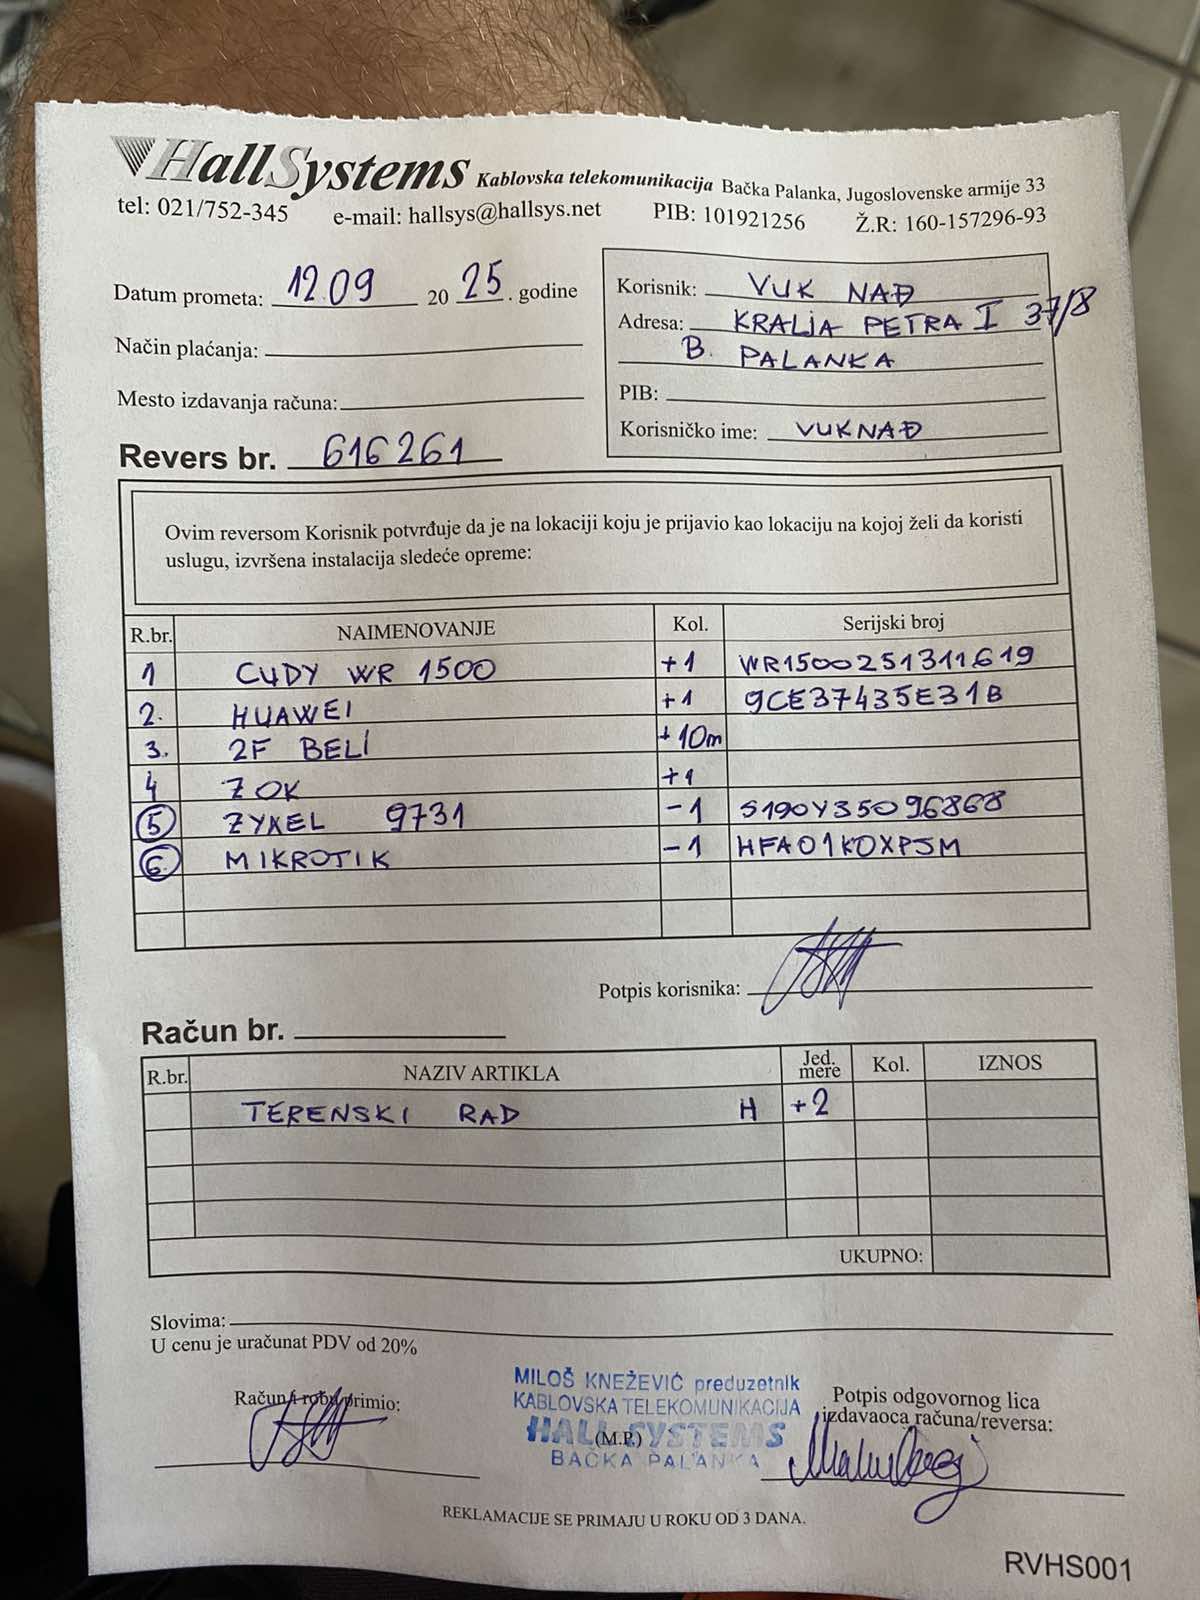 HallSystems Kablovska telekomunikacija Bačka Palanka, Jugoslovenske armije 33
tel: 021/752-345 e-mail: hallsys@hallsys.net PIB: 101921256 Ž.R: 160-157296-93
Datum prometa: 12.09 2025. godine
Način plaćanja:
Mesto izdavanja računa:
Revers br. 616261
Korisnik: VUK NAĐ
Adresa: KRALJA PETRA I 37/8
B. PALANKA
PIB:
Korisničko ime: VUKNAĐ
Ovim reversom Korisnik potvrđuje da je na lokaciji koju je prijavio kao lokaciju na kojoj želi da koristi
uslugu, izvršena instalacija sledeće opreme:
R.br. NAIMENOVANJE Kol. Serijski broj
1 CUDY WR 1500 +1 WR1500251311619
2. HUAWEI +1 9CE37435E31B
3. 2F BELI +10m
4 ZOK +1
5 ZYXEL 9731 -1 S190Y35096868
6. MIKROTIK -1 HFA01K0XPJM
Potpis korisnika:
Račun br.
R.br. NAZIV ARTIKLA Jed. mere Kol. IZNOS
TERENSKI RAD H +2
UKUPNO:
Slovima:
U cenu je uračunat PDV od 20%
Račun i robu primio:
MILOŠ KNEŽEVIĆ preduzetnik
KABLOVSKA TELEKOMUNIKACIJA
HALL SYSTEMS
(M.P.)
BAČKA PALANKA
Potpis odgovornog lica
izdavaoca računa/reversa:
REKLAMACIJE SE PRIMAJU U ROKU OD 3 DANA.
RVHS001